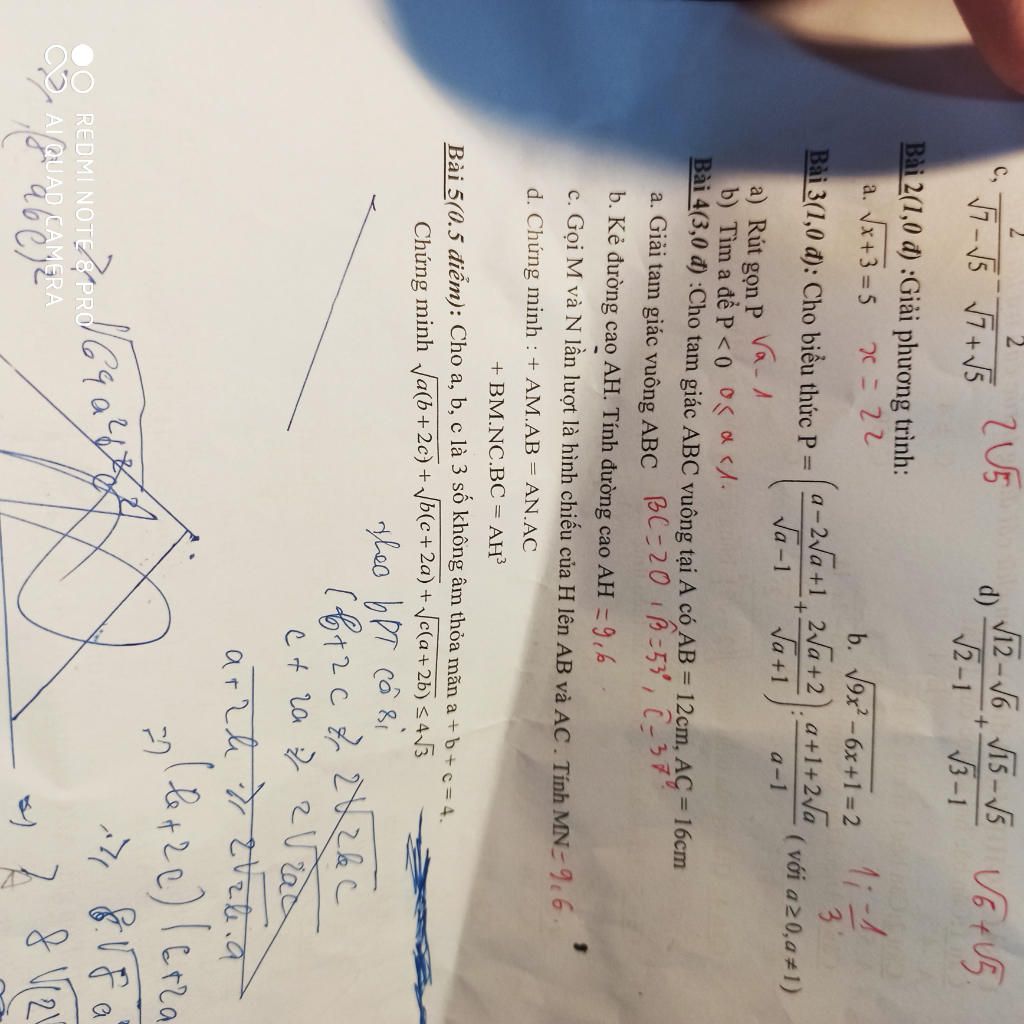 c, 2/(√7 − √5) − 2/(√7 + √5) 2√5 d) (√12 − √6)/(√2 − 1) + (√15 − √5)/(√3 − 1) √6 + √5
Bài 2(1,0 đ) :Giải phương trình:
a. √(x + 3) = 5 x = 22 b. √(9x² − 6x + 1) = 2 1; −1/3
Bài 3(1,0 đ): Cho biểu thức P = ((a − 2√a + 1)/(√a − 1) + (2√a + 2)/(√a + 1)) : (a + 1 + 2√a)/(a − 1) ( với a ≥ 0, a ≠ 1)
a) Rút gọn P √a − 1
b) Tìm a để P < 0 0 ≤ a < 1.
Bài 4(3,0 đ) :Cho tam giác ABC vuông tại A có AB = 12cm, AC = 16cm
a. Giải tam giác vuông ABC BC = 20, B̂ = 53°, Ĉ = 37°
b. Kẻ đường cao AH. Tính đường cao AH = 9,6
c. Gọi M và N lần lượt là hình chiếu của H lên AB và AC . Tính MN = 9,6.
d. Chứng minh : + AM.AB = AN.AC
+ BM.NC.BC = AH³
Bài 5(0.5 điểm): Cho a, b, c là 3 số không âm thỏa mãn a + b + c = 4.
Chứng minh √(a(b + 2c)) + √(b(c + 2a)) + √(c(a + 2b)) ≤ 4√3
theo bđt cô si
b + 2c ≥ 2√2bc
c + 2a ≥ 2√2ac
a + 2b ≥ 2√2b.a
=> (b + 2c) (c + 2a
REDMI NOTE 8 PRO
AI QUAD CAMERA